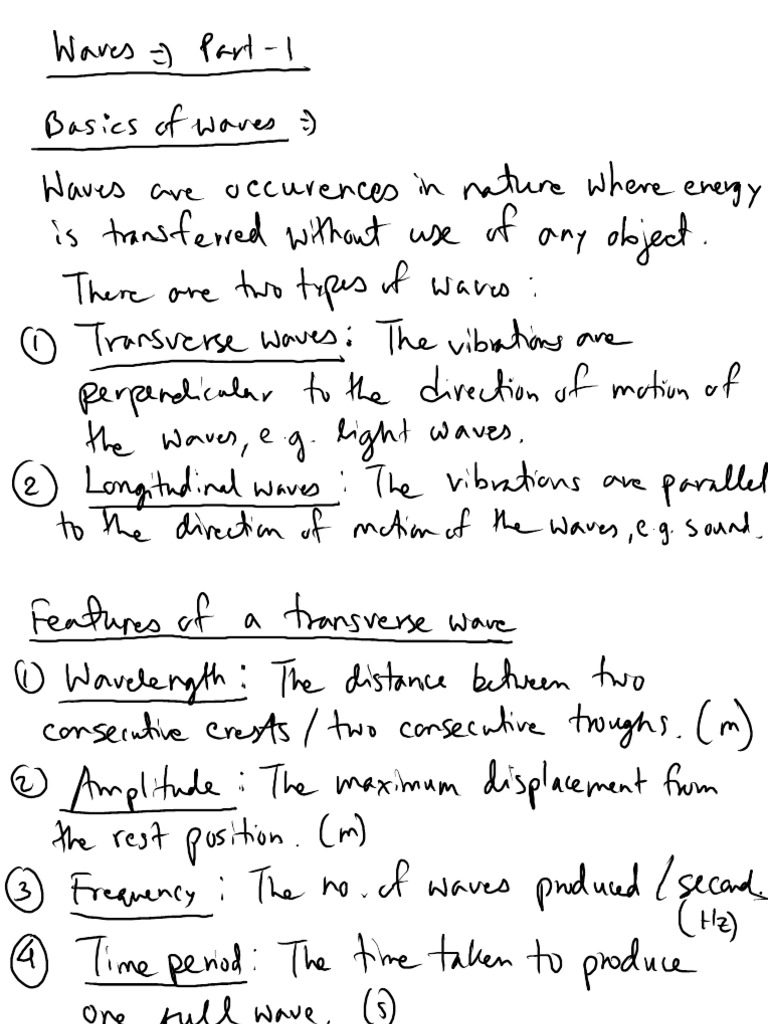 Waves => Part-1
Basics of waves =>
Waves are occurences in nature where energy
is transferred without use of any object.
There are two types of waves :
① Transverse waves: The vibrations are
perpendicular to the direction of motion of
the waves, e.g. light waves.
② Longitudinal waves: The vibrations are parallel
to the direction of motion of the waves, e.g. sound.
Features of a transverse wave
① Wavelength: The distance between two
consecutive crests / two consecutive troughs. (m)
② Amplitude: The maximum displacement from
the rest position. (m)
③ Frequency: The no. of waves produced / second.
(Hz)
④ Time period: The time taken to produce
one full wave. (s)